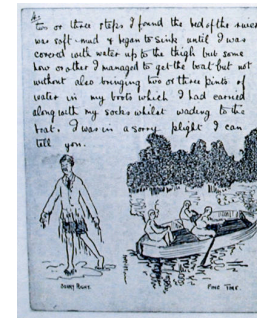 two or three steps I found the bed of the river
was soft mud & began to sink until I was
covered with water up to the thigh but some
how or other I managed to get the boat but not
without also bringing two or three pints of
water in my boots which I had carried
along with my socks whilst wading to the
boat. I was in a sorry plight I can
tell you.
SORRY PLIGHT
FINE TIME